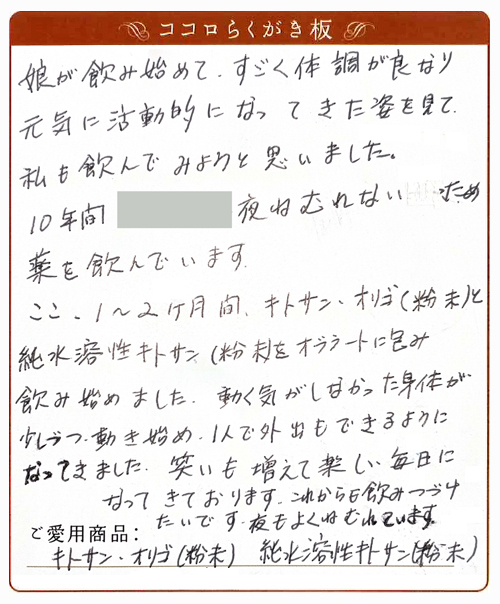 ココロらくがき板
娘が飲み始めて、すごく体調が良なり
元気に活動的になってきた姿を見て、
私も飲んでみようと思いました。
10年間 夜ねむれない ため
薬を飲んでいます。
ここ、1〜2ケ月間、キトサン・オリゴ(粉末)と
純水溶性キトサン(粉末)をオブラートに包み
飲み始めました。動く気がしなかった身体が
少しづつ動き始め、1人で外出もできるように
なってきました。笑いも増えて楽しい毎日に
なってきております。これからも飲みつづけ
たいです。夜もよくねむれています。
ご愛用商品:
キトサン・オリゴ(粉末) 純水溶性キトサン(粉末)